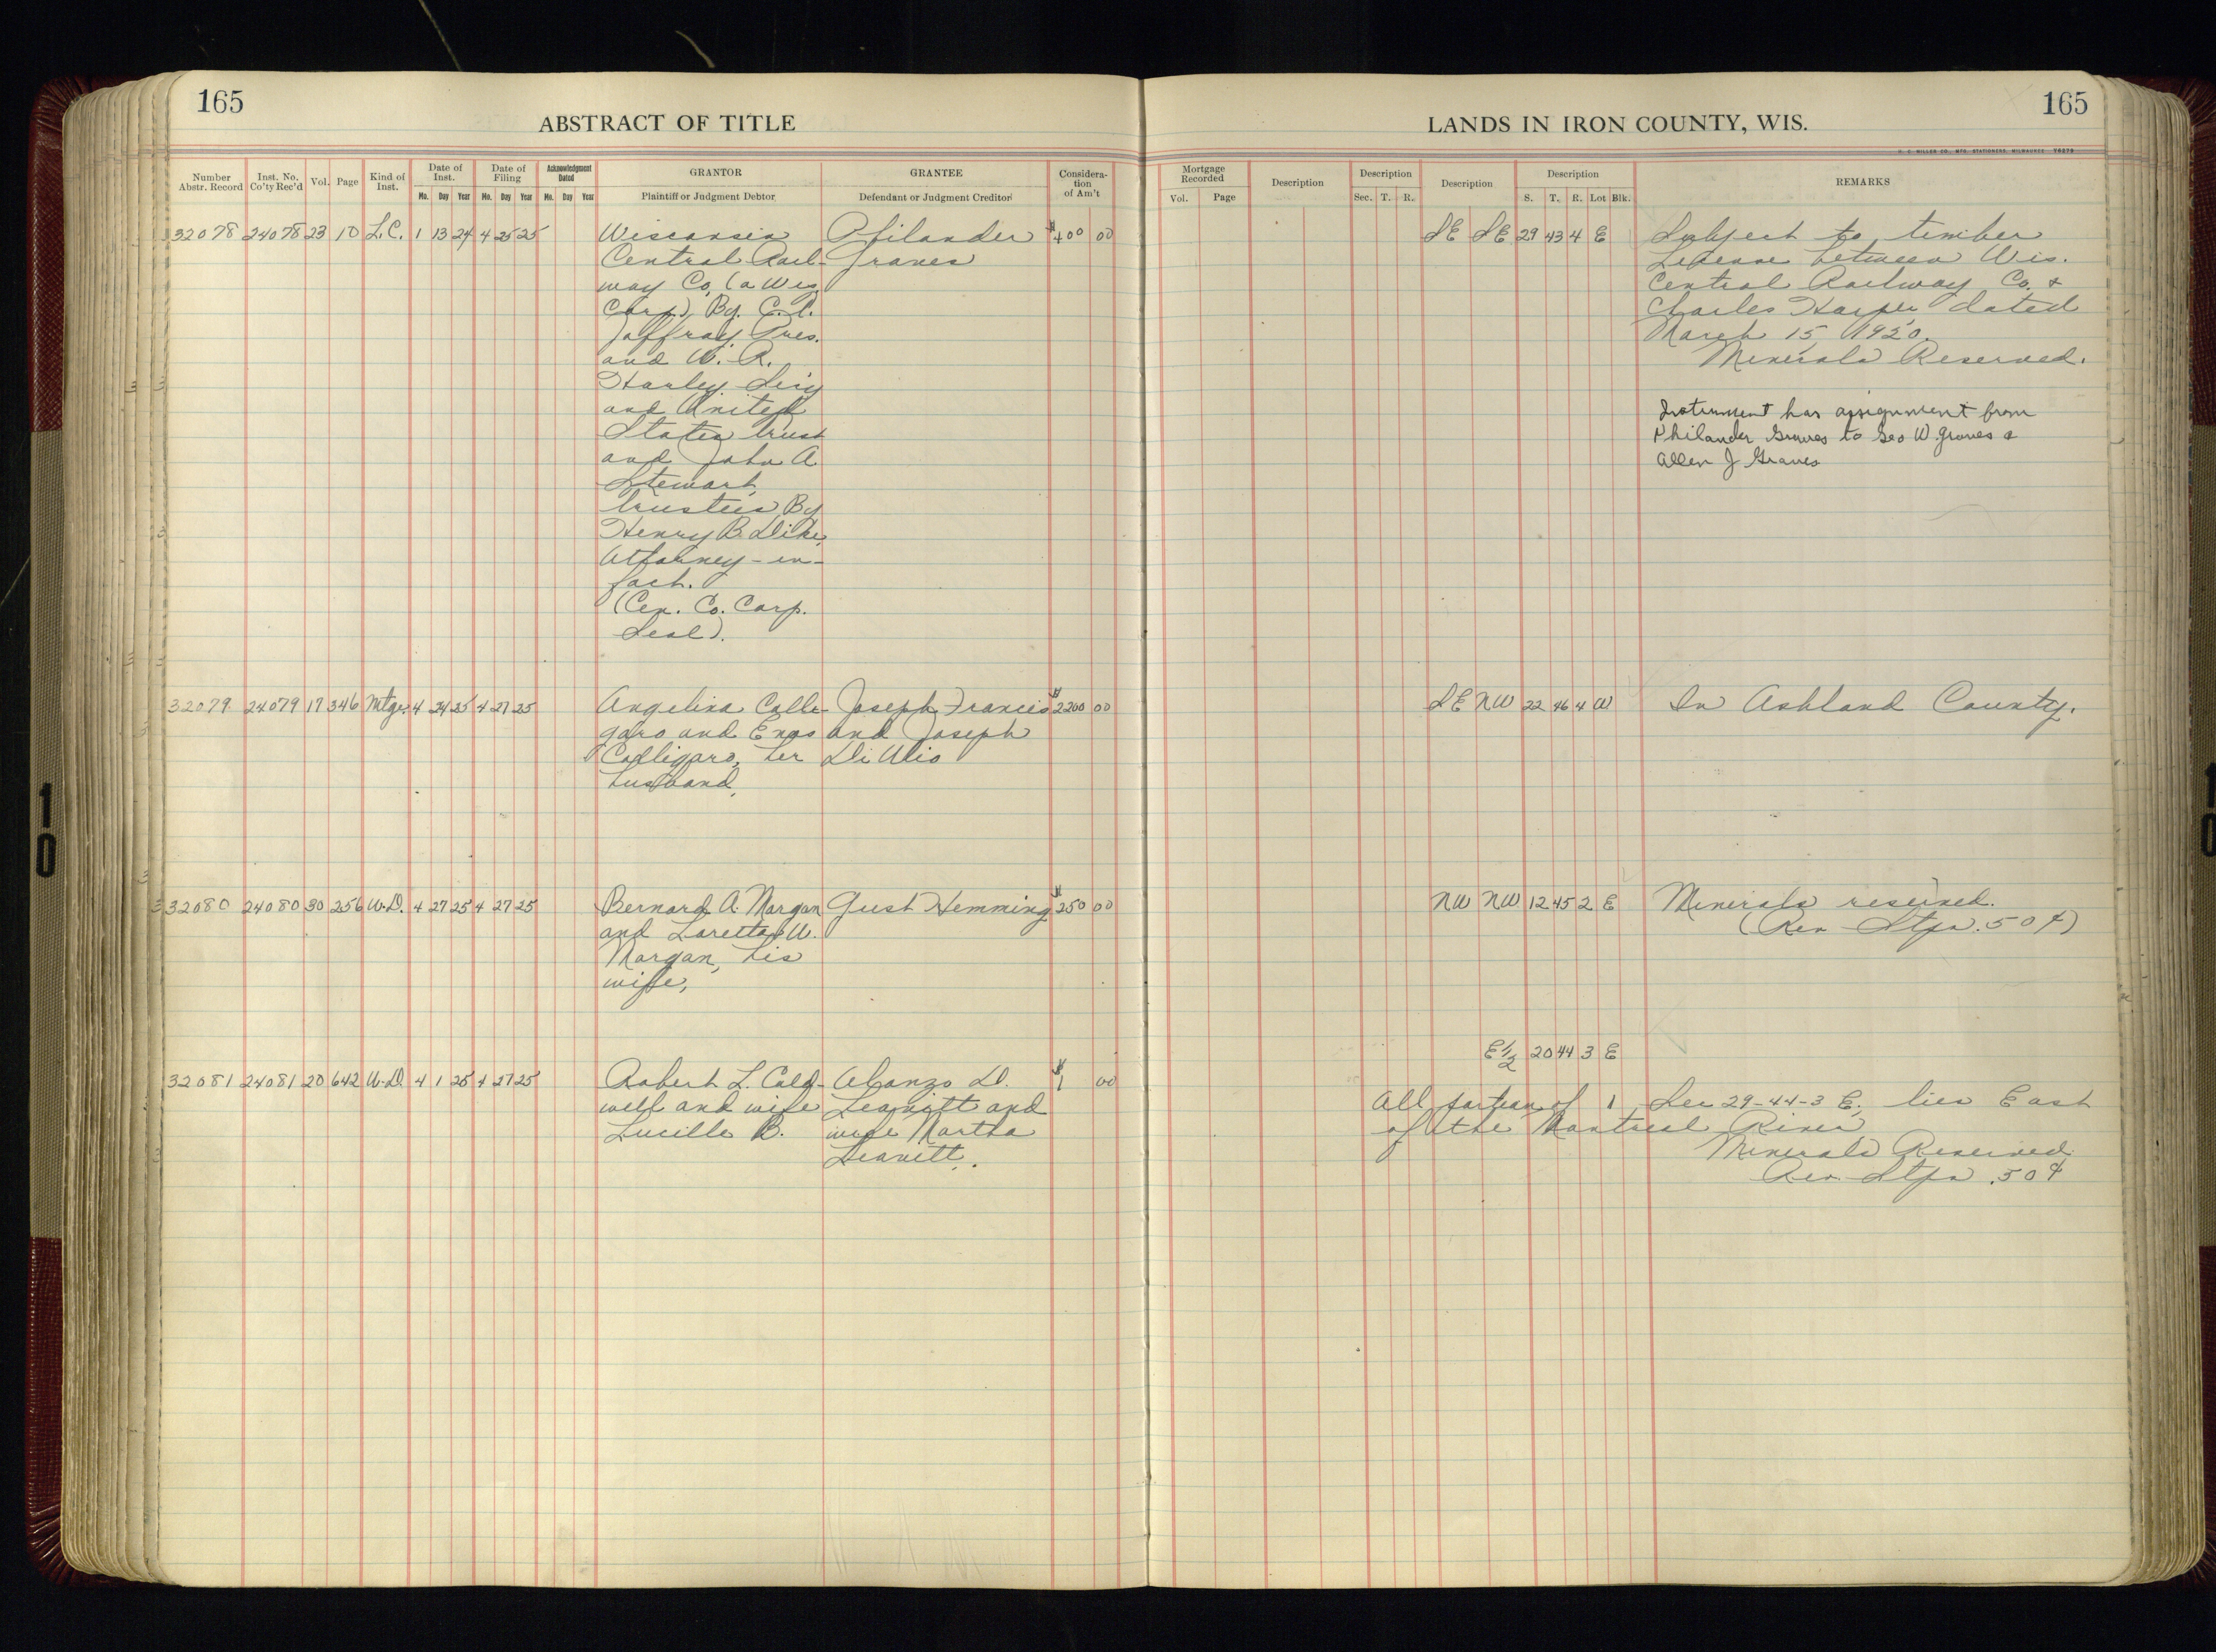 165
ABSTRACT OF TITLE
Number Abstr. Record
Inst. No. Co'ty Rec'd
Vol.
Page
Kind of Inst.
Date of Inst.
Mo. Day Year
Date of Filing
Mo. Day Year
Acknowledgment Dated
Mo. Day Year
GRANTOR
Plaintiff or Judgment Debtor
GRANTEE
Defendant or Judgment Creditor
Considera-
tion
of Am't
32078 24078 23 10 L.C. 1 13 24 4 25 25 Wisconsin Philander $400 00
Central Rail- Graves
way Co, (a Wis.
Corp), By. C.
Jaffray Pres.
and W. R.
Harley
and United
States trust
and John A
Stewart,
trustees By
Henry B. Dike,
Attorney-in-
fact.
(Cen. Co. Corp.
Seal).
32079 24079 17 346 Mtge. 4 24 25 4 27 25 Angelina Colli- Joseph Francis $2200 00
garo and Enos and Joseph
Colligaro, her Di Ulio
husband,
32080 24080 30 256 W.D. 4 27 25 4 27 25 Bernard A. Morgan Gust Hemming $250 00
and Loretta W.
Morgan, his
wife,
32081 24081 20 642 W.D. 4 1 25 4 27 25 Robert L. Cald- Alonzo D. $1 00
well and wife Leavitt and
Lucille B. wife Martha
Leavitt.
165
LANDS IN IRON COUNTY, WIS.
H. C. MILLER CO., MFG. STATIONERS, MILWAUKEE
Mortgage Recorded
Vol. Page
Description
Description
Sec. T. R.
Description
Description
S. T. R. Lot Blk.
REMARKS
SE SE 29 43 4 E Subject to timber
between Wis.
Central Railway Co. &
Charles Harper dated
March 15, 1920.
Minerals Reserved.
Instrument has assignment from
Philander Graves to Geo W. Graves &
Allen J Graves
SE NW 22 46 4 W In Ashland County.
NW NW 12 45 2 E Minerals reserved.
(Rev Stps. 50¢)
E 1/2 20 44 3 E
All portion of Sec 29-44-3 E. lies East
of the Montreal River
Minerals Reserved
Rev. Stps .50¢